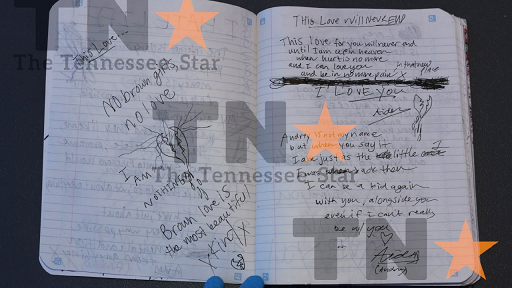 No Love
No brown girls,
no love
I AM
NOTHING
Brown love is
the most beautiful
kind
This Love Will Never END
This love for you will never end
until I am up in heaven
when hurt is no more
and I can love you in that real place
and be in no more pain
I LOVE You
Aiden
my name
but when you say it
I am just as the little
I was back then
I can be a kid again
with you, alongside you
even if I can't really
be w/ you
Aiden
(Audrey)
TN
The Tennessee Star
TN
The Tennessee Star
TN